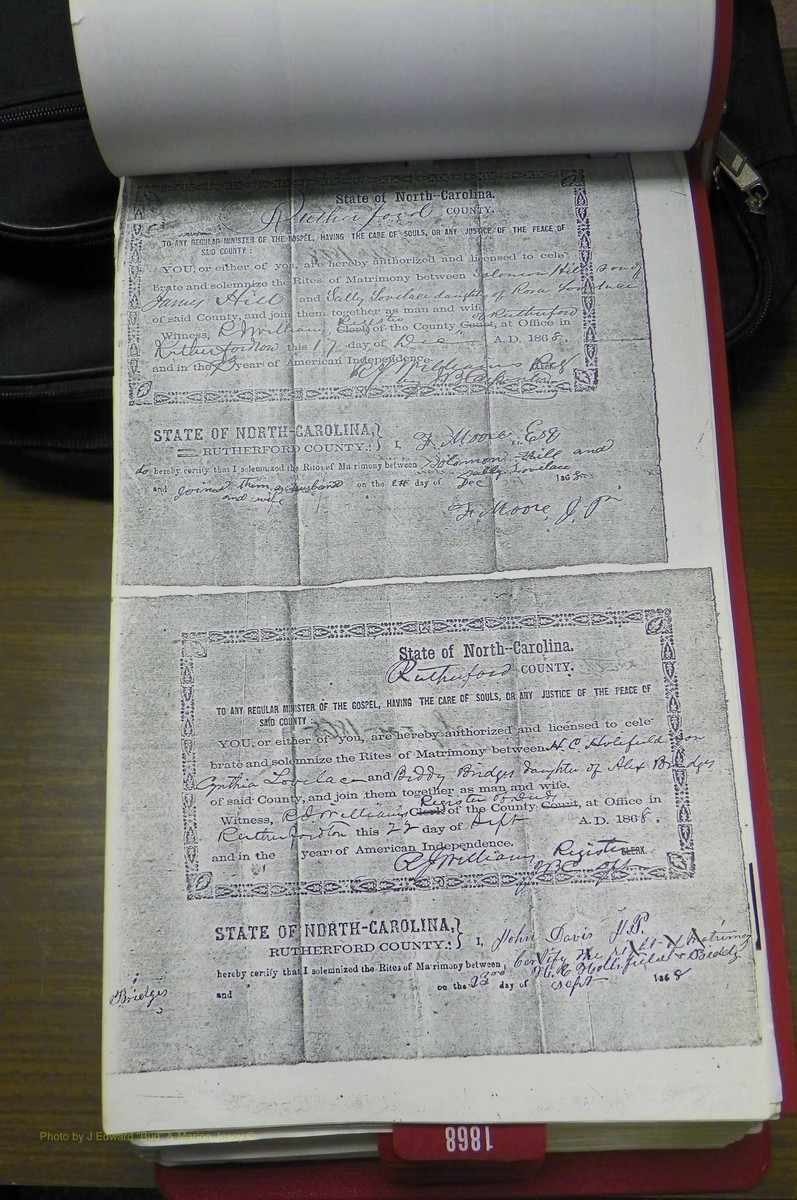 State of North-Carolina.
Rutherford COUNTY.
TO ANY REGULAR MINISTER OF THE GOSPEL, HAVING THE CARE OF SOULS, OR ANY JUSTICE OF THE PEACE OF
SAID COUNTY :
YOU, or either of you, are hereby authorized and licensed to cele-
brate and solemnize the Rites of Matrimony between Solomon Hill son of
James Hill and Sally Lovelace daughter of Rosa Lovelace
of said County, and join them together as man and wife.
Witness, R J Williams Register Clerk of the County Court, at Office in
Rutherfordton this day of Dec A. D. 1868.
and in the year of American Independence.
R J Williams Reg CLERK
STATE OF NORTH-CAROLINA,
RUTHERFORD COUNTY. I, F. Moore, Esq
do hereby certify that I solemnized the Rites of Matrimony between Solomon Hill and
Sally Lovelace
and joined them as husband on the 24 day of Dec 1868
and wife
F. Moore, J. P.
State of North-Carolina.
Rutherford COUNTY.
TO ANY REGULAR MINISTER OF THE GOSPEL, HAVING THE CARE OF SOULS, OR ANY JUSTICE OF THE PEACE OF
SAID COUNTY :
YOU, or either of you, are hereby authorized and licensed to cele-
brate and solemnize the Rites of Matrimony between H. C. Holifield son
Cynthia Lovelace and Biddy Bridges daughter of Alex Bridges
of said County, and join them together as man and wife.
Witness, R J Williams Register of Deeds Clerk of the County Court, at Office in
Rutherfordton this 22 day of Sept A. D. 1868.
and in the year of American Independence.
R J Williams Register CLERK
STATE OF NORTH-CAROLINA,
RUTHERFORD COUNTY. I, John Davis J.P.
hereby certify that I solemnized the Rites of Matrimony between Certify the of Matrimony
H. C. Hollifield & Biddy
Bridges and on the 23rd day of Sept 1868
1868
Photo by J Edward "Bud" & Marlea Josey ©